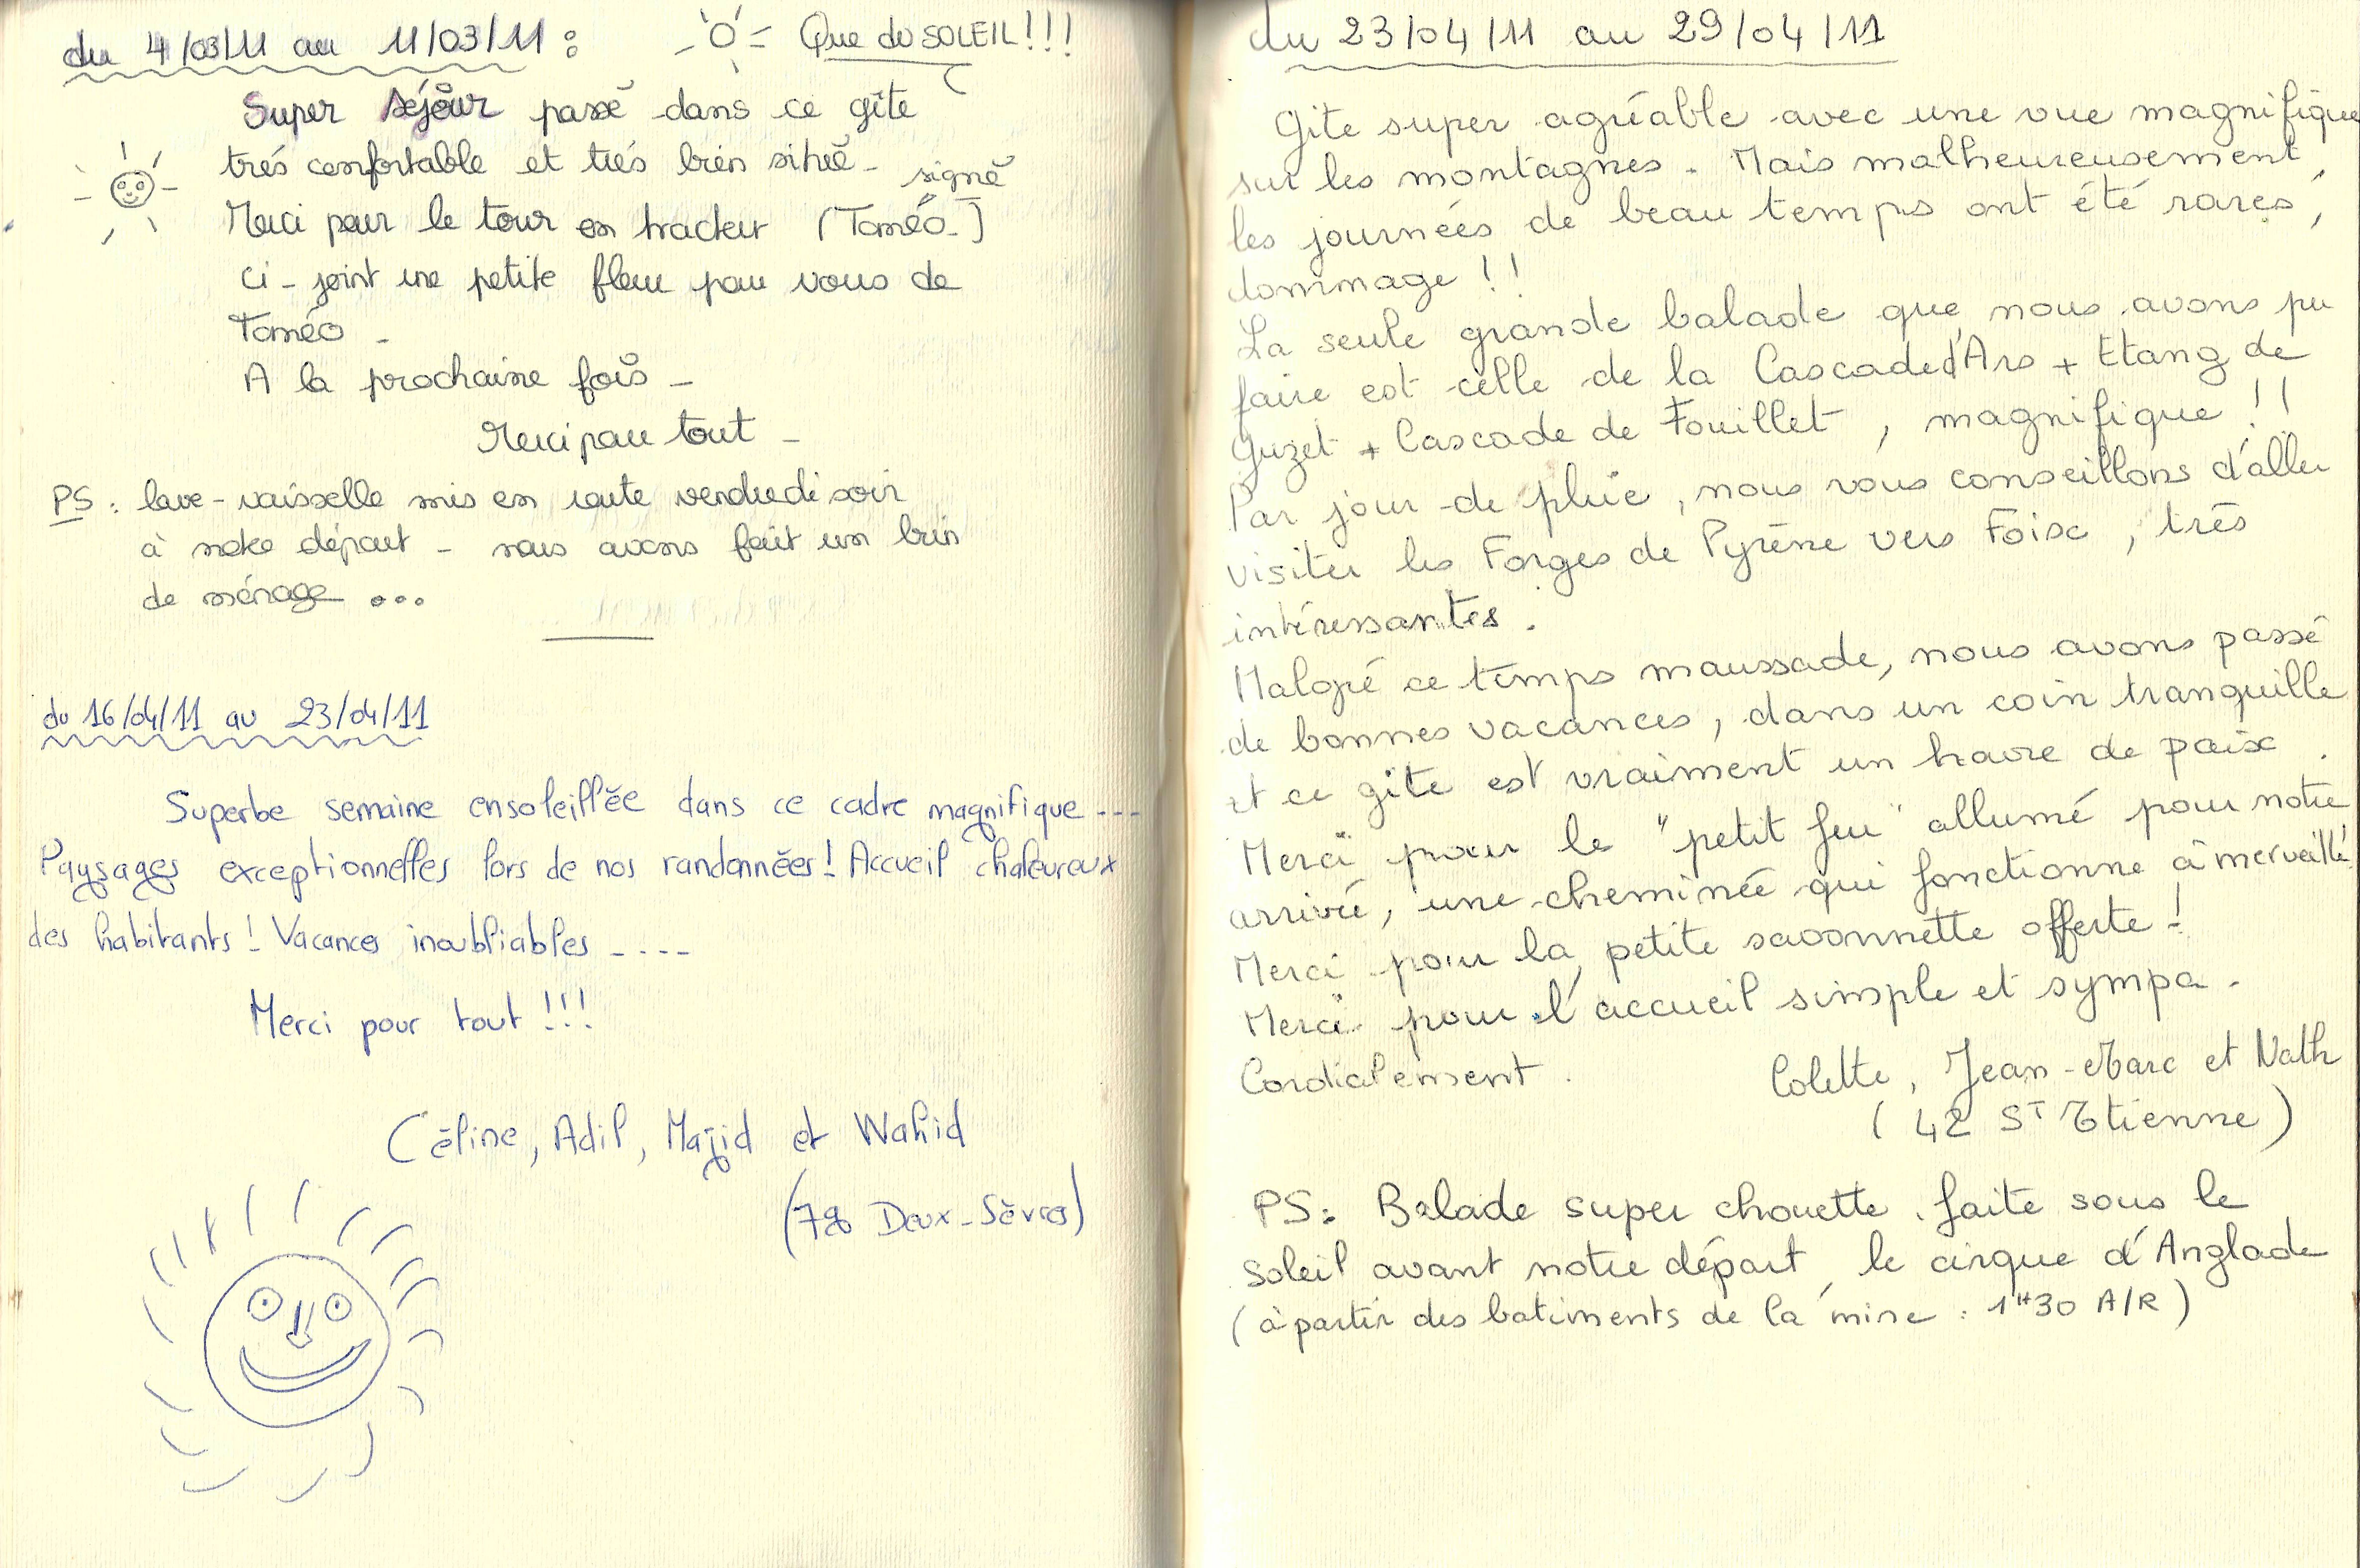 du 4/03/11 au 11/03/11 : Que du SOLEIL!!!
Super séjour passé dans ce gîte
très confortable et très bien situé - signé
Merci pour le tour en tracteur (Toméo-)
Ci-joint une petite fleur pour vous de
Toméo -
A la prochaine fois -
Merci pour tout -
PS : lave-vaisselle mis en route vendredi soir
à notre départ - nous avons fait un brin
de ménage ...
du 16/04/11 au 23/04/11
Superbe semaine ensoleillée dans ce cadre magnifique ---
Paysages exceptionnelles lors de nos randonnées! Accueil chaleureux
des habitants! Vacances inoubliables ----
Merci pour tout !!!
Céline, Adil, Majid et Wahid
(79 Deux-Sèvres)
du 23/04/11 au 29/04/11
Gite super agréable avec une vue magnifique
sur les montagnes. Mais malheureusement,
les journées de beau temps ont été rares,
dommage !!
La seule grande balade que nous avons pu
faire est celle de la Cascade d'Ars + Etang de
Guzet + Cascade de Fouillet, magnifique !!
Par jour de pluie, nous vous conseillons d'aller
visiter les Forges de Pyrène vers Foix, très
intéressantes.
Malgré ce temps maussade, nous avons passé
de bonnes vacances, dans un coin tranquille
et ce gîte est vraiment un havre de paix.
Merci pour le "petit feu" allumé pour notre
arrivée, une cheminée qui fonctionne à merveille!
Merci pour la petite savonnette offerte !
Merci pour l'accueil simple et sympa.
Cordialement. Colette, Jean-Marc et Nath
(42 St Etienne)
PS: Balade super chouette faite sous le
soleil avant notre départ, le cirque d'Anglade
(à partir des batiments de la mine : 1H30 A/R)